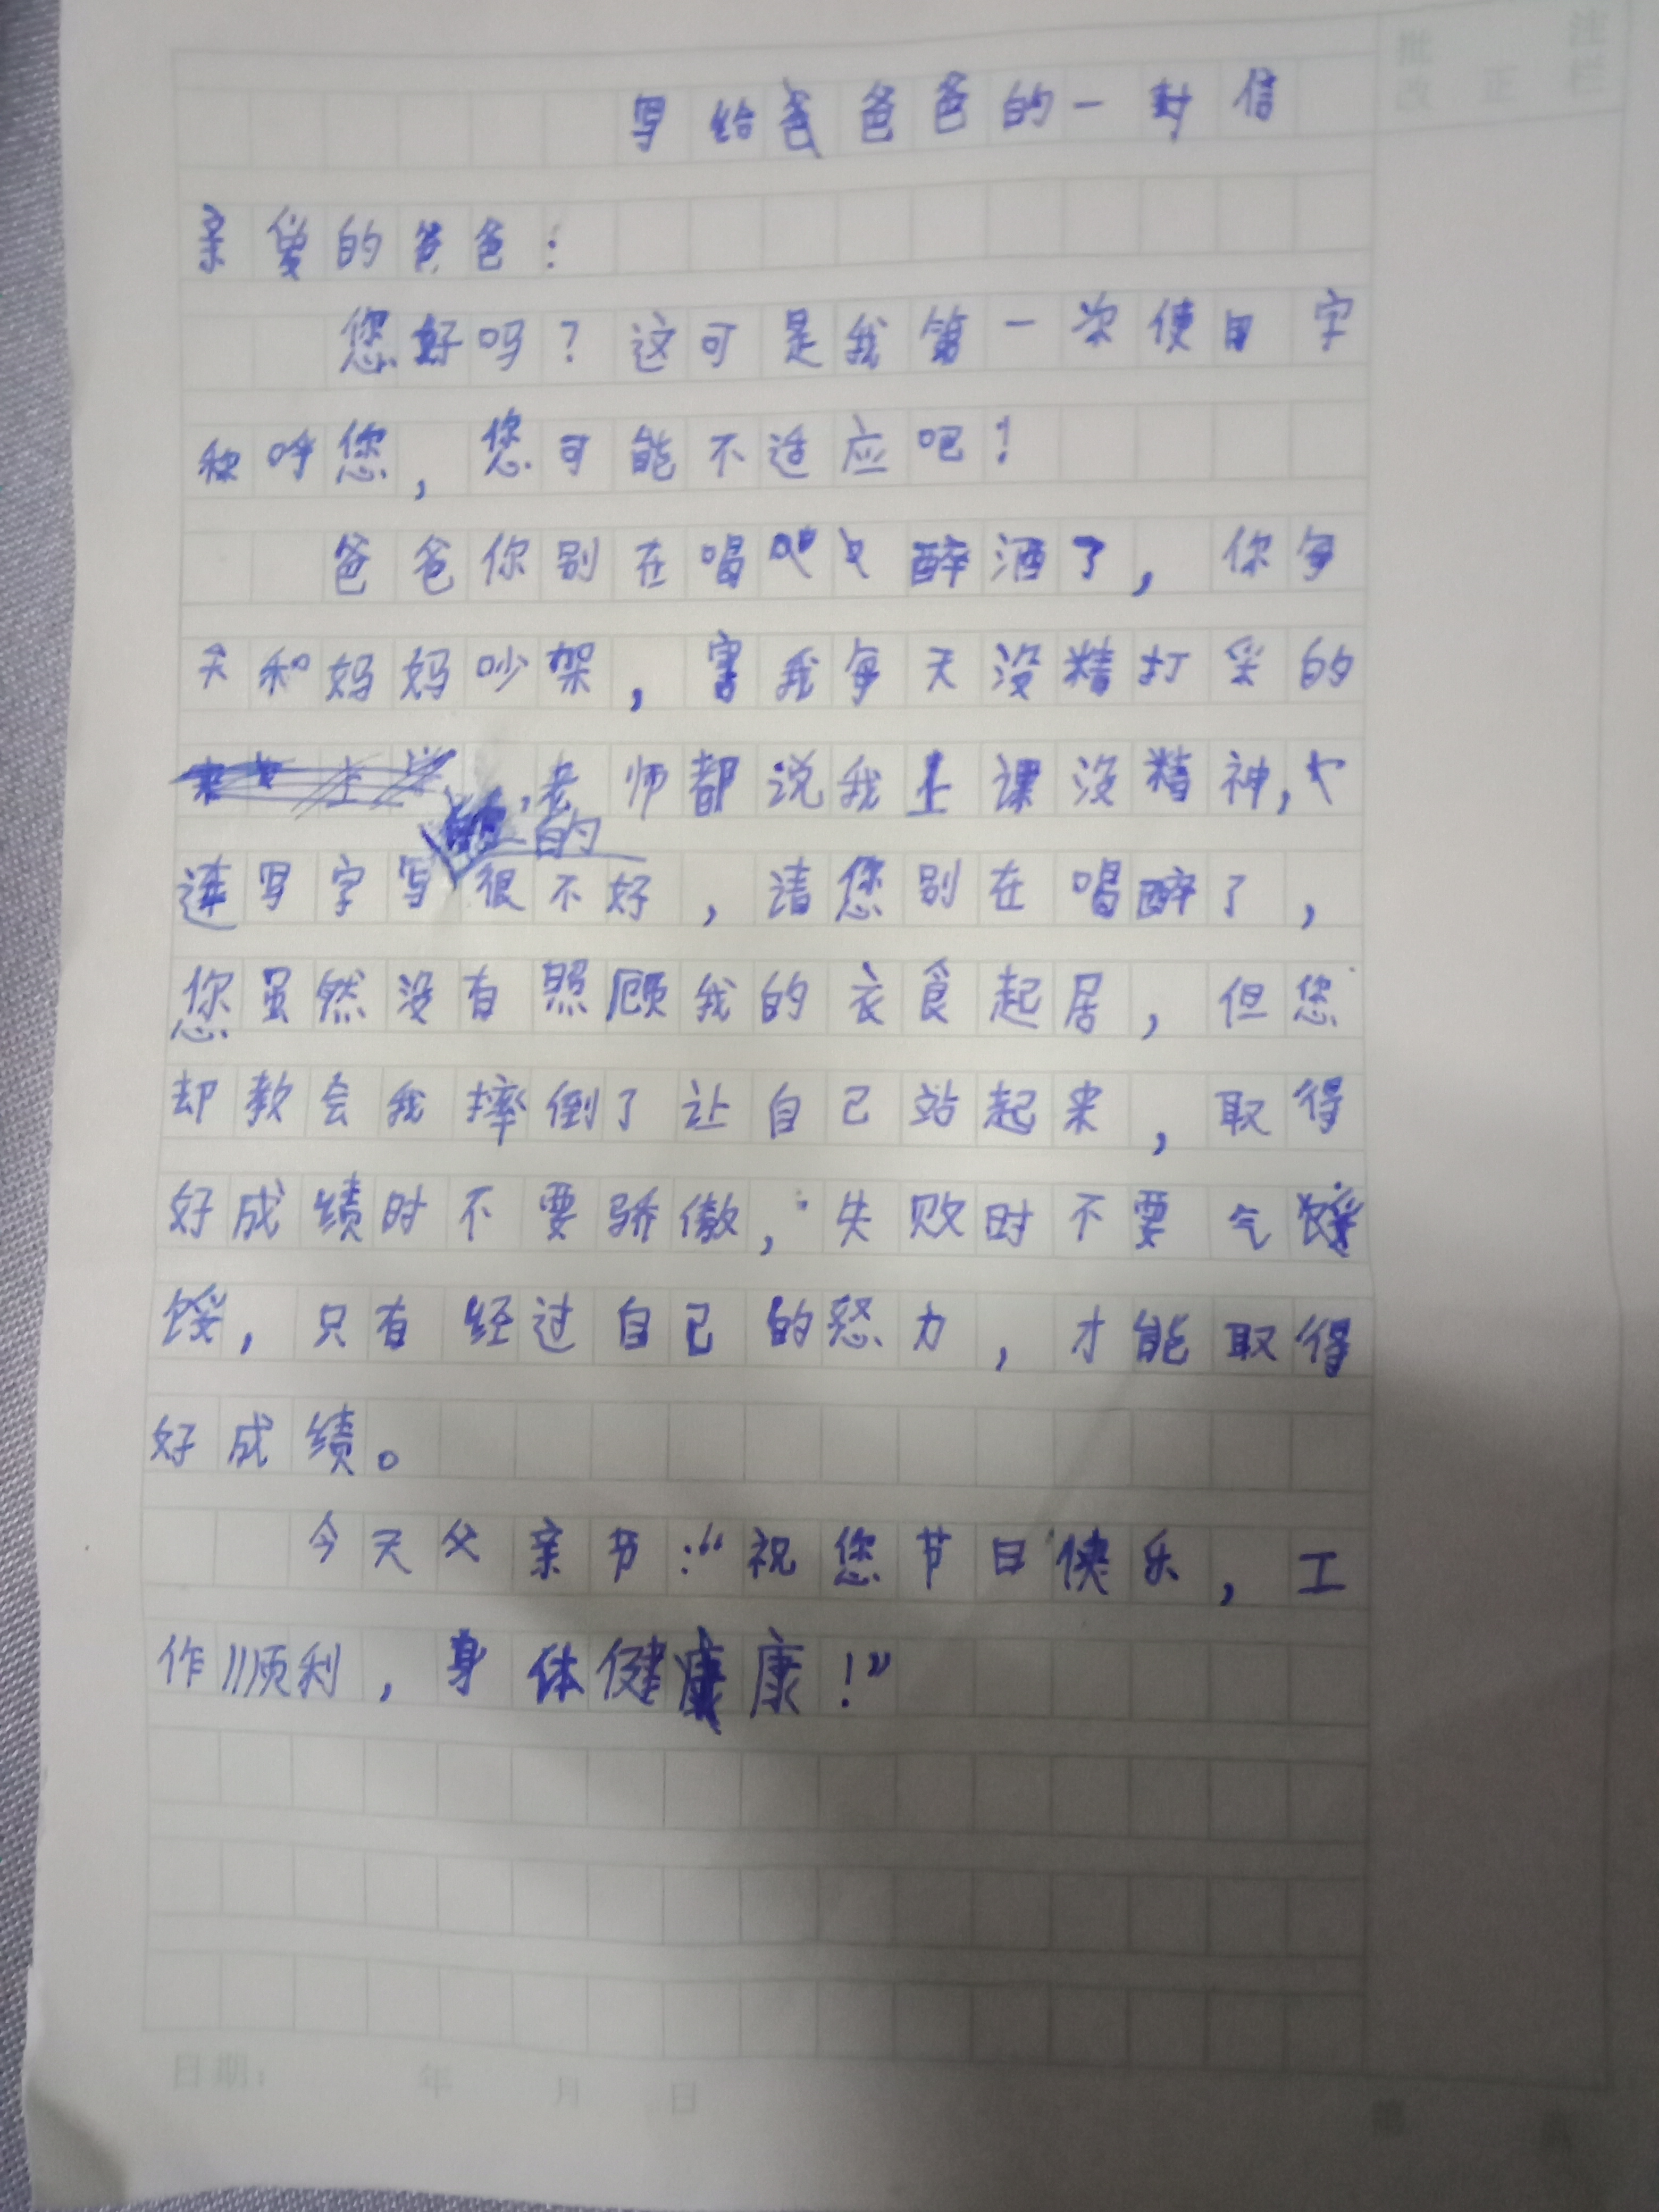 批 注
改 正 栏
写给爸爸的一封信
亲爱的爸爸:
您好吗?这可是我第一次使自字
和呼您,您可能不适应吧!
爸爸你别在喝醉酒了,你每
天和妈妈吵架,害我每天没精打采的
,老师都说我上课没精神,
连写字写的很不好,请您别在喝醉了,
您虽然没有照顾我的衣食起居,但您
却教会我摔倒了让自己站起来,取得
好成绩时不要骄傲,失败时不要气
馁,只有经过自己的怒力,才能取得
好成绩。
今天父亲节:“祝您节日快乐,工
作顺利,身体健康!”
日期: 年 月 日